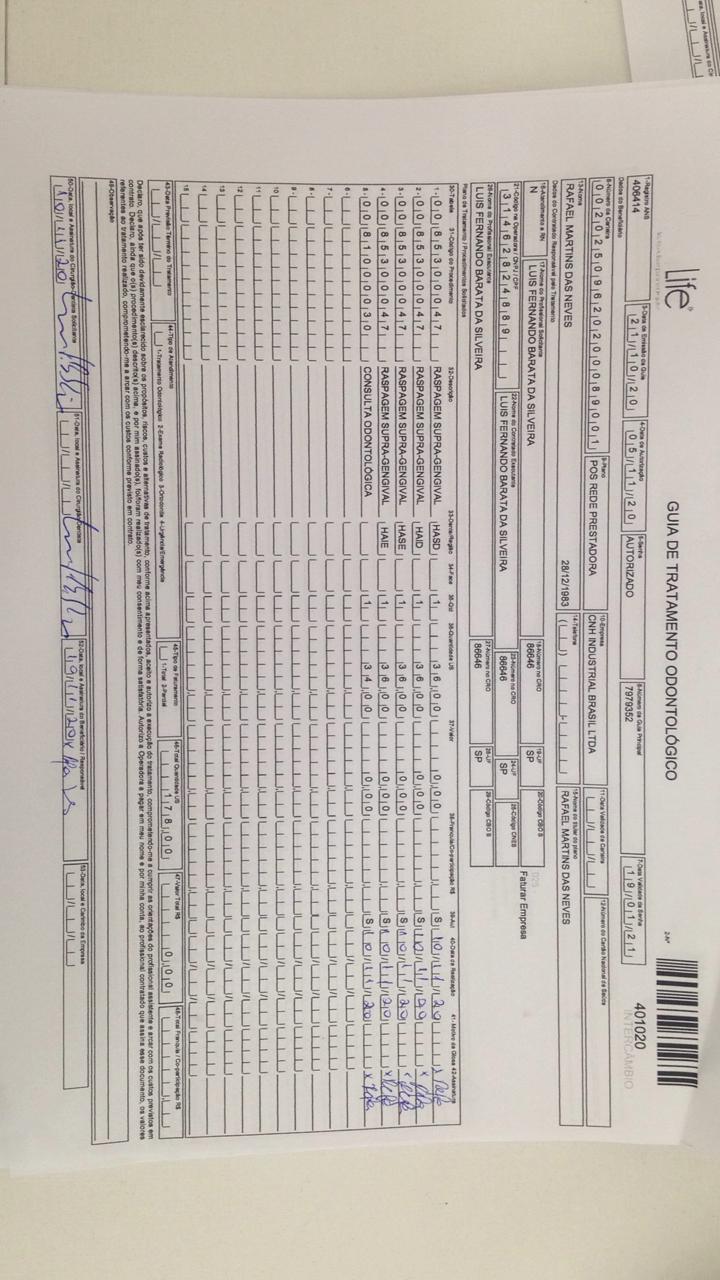 life
GUIA DE TRATAMENTO ODONTOLÓGICO
2-Nº
401020
INTERCÂMBIO
1-Registro ANS
406414
3-Data de Emissão da Guia
21/10/20
4-Data de Autorização
05/11/20
5-Senha
AUTORIZADO
6-Número da Guia Principal
7979352
7-Data Validade da Senha
19/01/21
Dados do Beneficiário
8-Número da Carteira
9-Plano
POS REDE PRESTADORA
10-Empresa
CNH INDUSTRIAL BRASIL LTDA
11-Data Validade da Carteira
12-Número do Cartão Nacional de Saúde
13-Nome
RAFAEL MARTINS DAS NEVES
28/12/1983
14-Telefone
15-Nome do titular do plano
RAFAEL MARTINS DAS NEVES
Dados do Contratado Responsável pelo Tratamento
16-Atendimento a RN
N
17-Nome do Profissional Solicitante
LUIS FERNANDO BARATA DA SILVEIRA
18-Número no CRO
86646
19-UF
SP
20-Código CBO S
025
Faturar Empresa
21-Código na Operadora / CNPJ / CPF
31462824889
22-Nome do Contratado Executante
LUIS FERNANDO BARATA DA SILVEIRA
23-Número no CRO
86646
24-UF
SP
25-Código CNES
26-Nome do Profissional Executante
LUIS FERNANDO BARATA DA SILVEIRA
27-Número no CRO
86646
28-UF
SP
29-Código CBO S
Plano de Tratamento / Procedimentos Solicitados
30-Tabela 31-Código do Procedimento 32-Descrição 33-Dente/Região 34-Face 35-Qtd 36-Quantidade US 37-Valor 38-Franquia/Co-participação R$ 39-Aut 40-Data de Realização 41-Motivo da Glosa 42-Assinatura
1- 00 85300047 RASPAGEM SUPRA-GENGIVAL HASD 1 36,00 0,00 S 10/11/20
2- 00 85300047 RASPAGEM SUPRA-GENGIVAL HAID 1 36,00 0,00 S 10/11/20
3- 00 85300047 RASPAGEM SUPRA-GENGIVAL HASE 1 36,00 0,00 S 10/11/20
4- 00 85300047 RASPAGEM SUPRA-GENGIVAL HAIE 1 36,00 0,00 S 10/11/20
5- 00 81000030 CONSULTA ODONTOLÓGICA 1 34,00 0,00 S 10/11/20
6-
7-
8-
9-
10
11
12
13
14
15
43-Data Previsão Término do Tratamento
44-Tipo de Atendimento
1-Tratamento Odontológico 2-Exame Radiológico 3-Ortodontia 4-Urgência/Emergência
45-Tipo de Faturamento
1-Total 2-Parcial
46-Total Quantidade US
178,00
47-Valor Total R$
0,00
48-Total Franquia / Co-participação R$
Declaro, que após ter sido devidamente esclarecido sobre os propósitos, riscos, custos e alternativas de tratamento, conforme acima apresentados, aceito e autorizo a execução do tratamento, comprometendo-me a cumprir as orientações do profissional assistente e arcar com os custos previstos em
contrato. Declaro, ainda que o(s) procedimento(s) descrito(s) acima, e por mim assinado(s), foi/foram realizado(s) com meu consentimento e de forma satisfatória. Autorizo a Operadora a pagar em meu nome e por minha conta, ao profissional contratado que assina esse documento, os valores
referentes ao tratamento realizado, comprometendo-me a arcar com os custos conforme previsto em contrato.
49-Observação
50-Data, local e Assinatura do Cirurgião-Dentista Solicitante
10/11/20
51-Data, local e Assinatura do Cirurgião-Dentista
52-Data, local e Assinatura do Beneficiário / Responsável
53-Data, local e Carimbo da Empresa